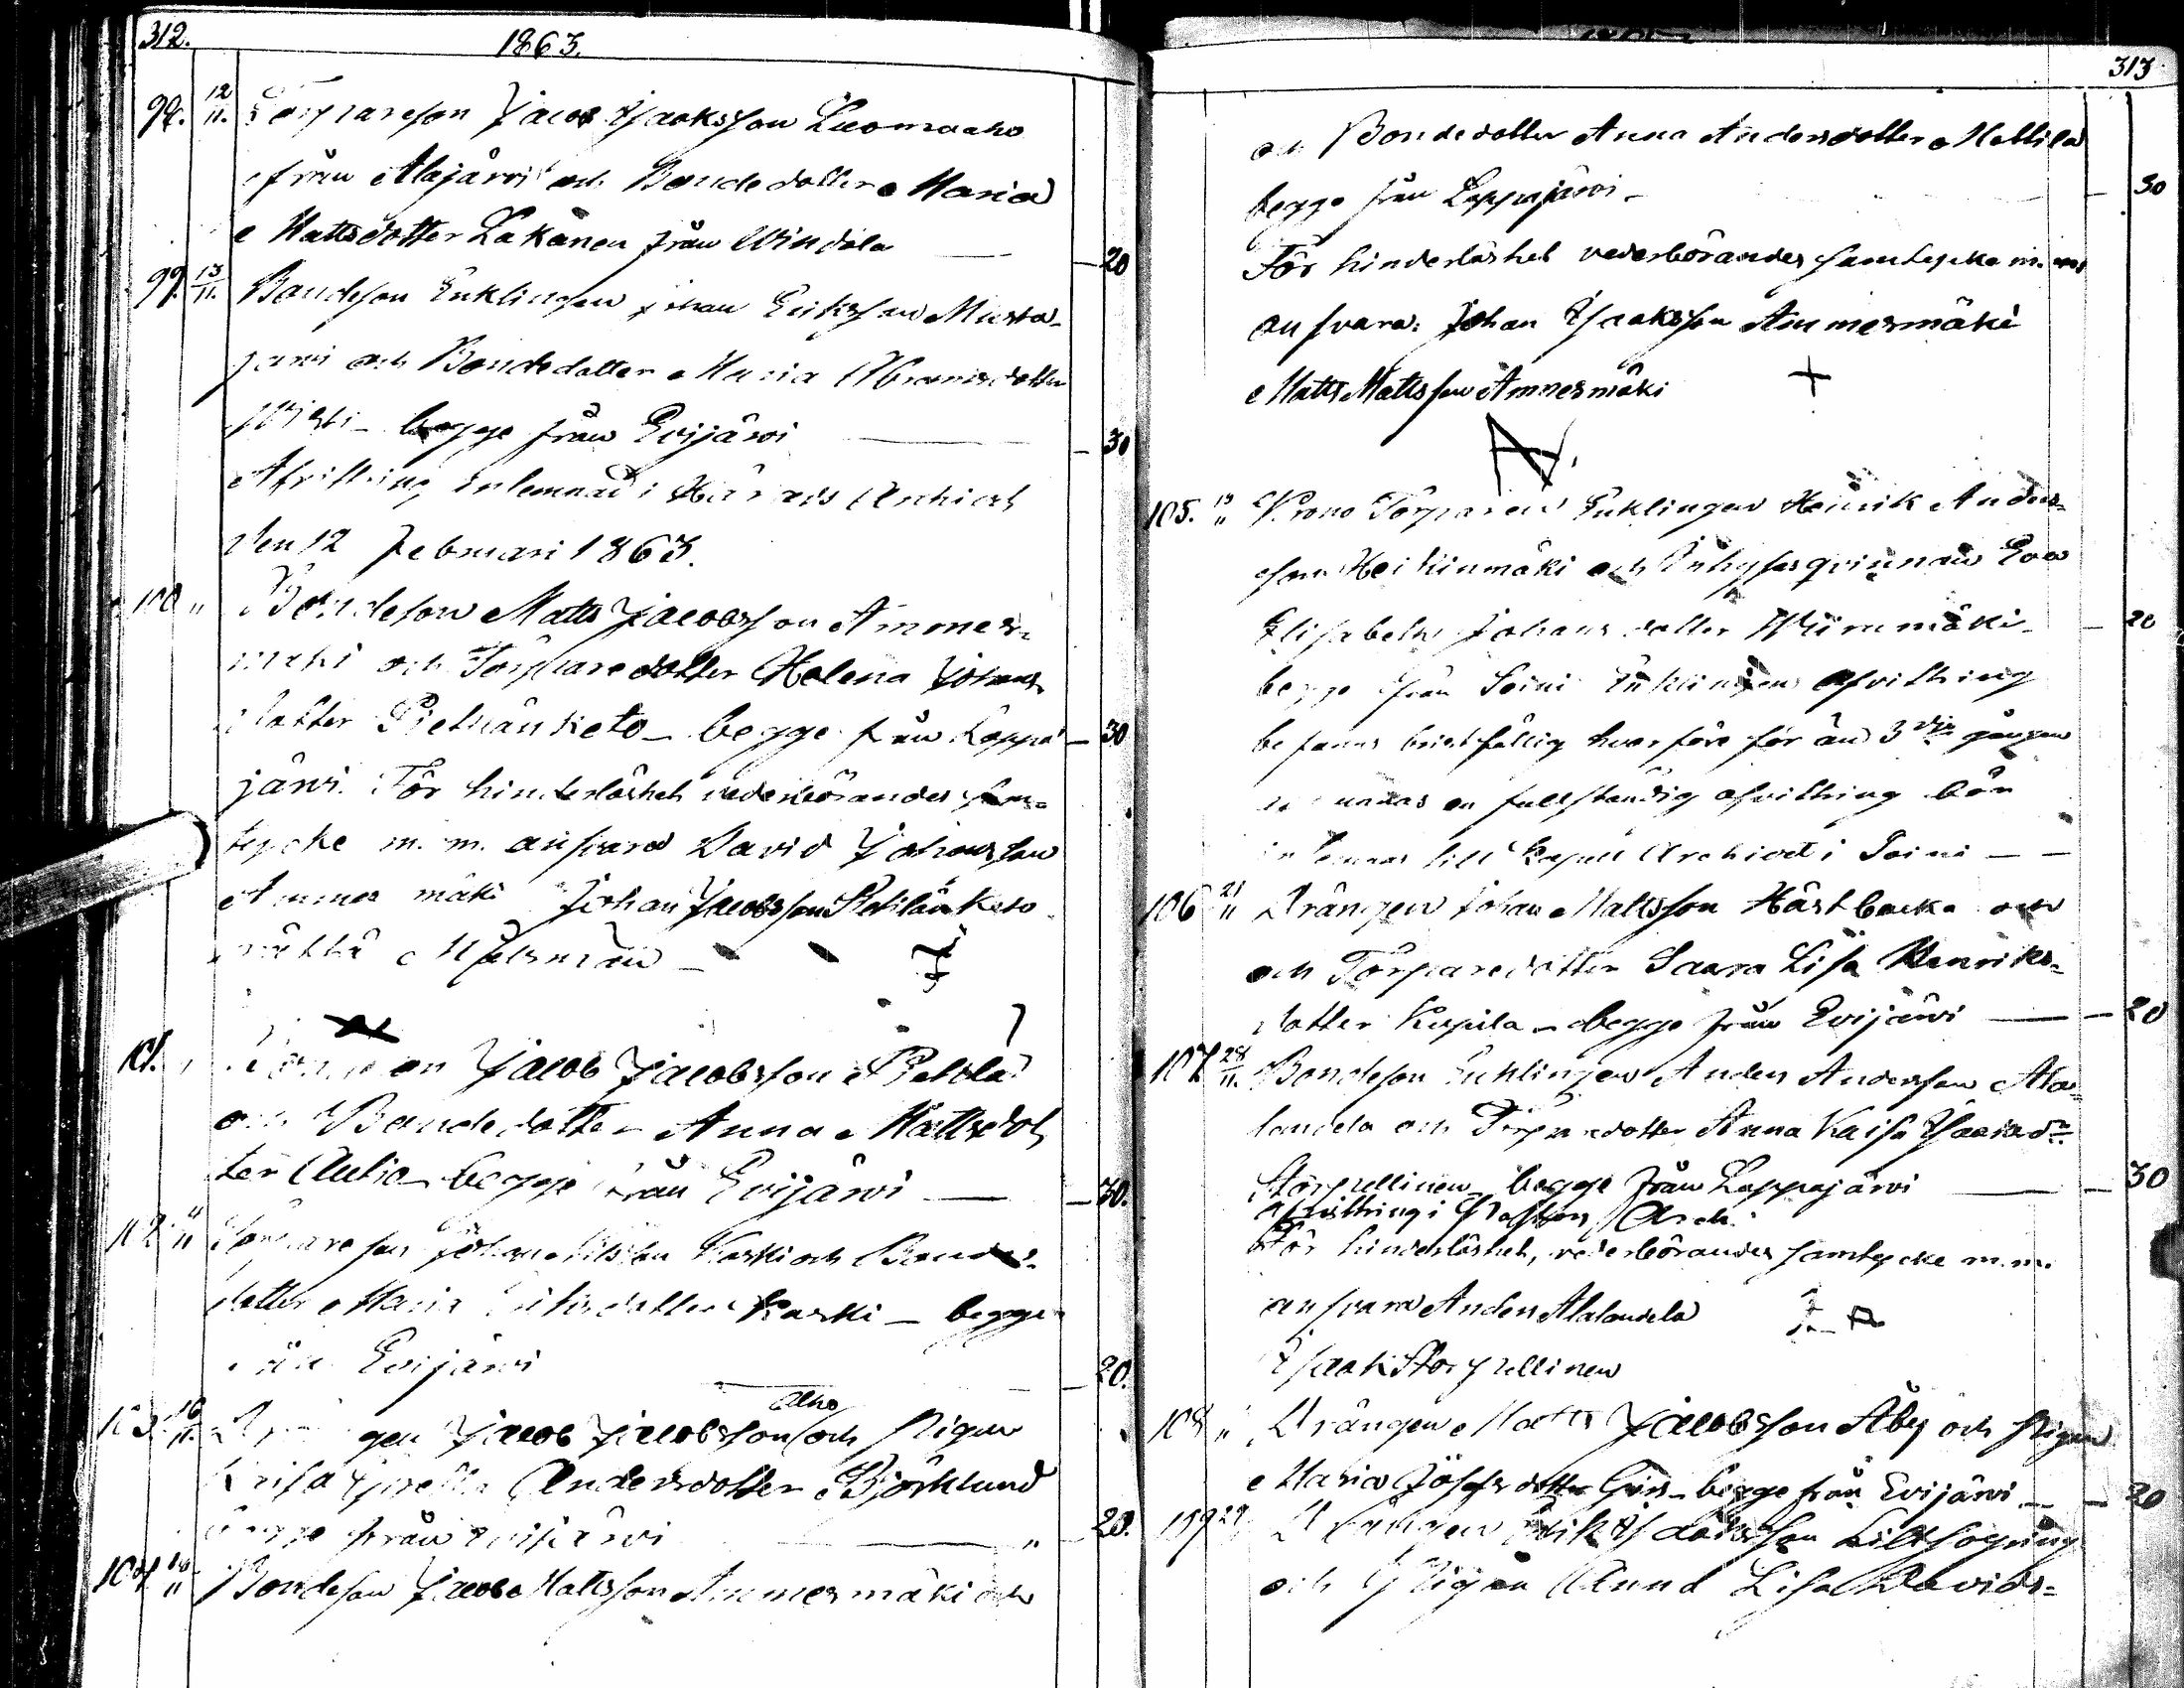 312.
1863.
98. 12/11. Torpareson Jacob Isaksson Luomaaho
från Alajärvi och Bondedotter Maria
Mattsdotter Lakanen från Windala — 20
99. 13/11. Bondeson Enklingen Johan Eriksson Musta-
järvi och Bondedotter Maria Abramsdotter
Wisti - begge från Evijärvi — 30
Afvittring inlemnad i Härads Archivet
den 12 Februari 1863.
100 " Bondeson Matts Jacobsson Ammes-
mäki och Torparedotter Helena Johans
dotter Pietiläinketo - begge från Lappa- — 30
järvi. För hinderlöshet vederbörandes sam-
tycke m. m. ansvara David Johansson
Ammesmäki Johan Jacobsson Pietiläinketo
Målsmän
101. " Jacob Jacobsson Peltola
och Bondedotter Anna Mattsdot
ter Autio - begge från Evijärvi — 30.
102. " Torpareson Johan Nilsson Kaski och Bonde-
dotter Maria Eriksdotter Kaski - begge
från Evijärvi — 20.
103. 16/11. Drängen Jacob Jacobsson Alho och Pigan
Andersdotter Björklund
begge från Evijärvi " 20.
104 " Bondeson Jacob Mattsson Ammesmäki och
313
och Bondedotter Anna Andersdotter Mattila
begge från Lappajärvi - — 30
För hinderlöshet vederbörandes samtycke m. m.
ansvara: Johan Isaksson Ammesmäki
Matts Mattsson Ammesmäki +
105. " Krono Torparen Enklingen Henrik Anders-
son Heikinmäki och Inhyses qvinnan Eva
Elisabeth Johansdotter Wiirmmäki - — 20
begge från Soini Enklingens afvittring
befanns bristfällig hvarföre för än 3dje gången
en fullständig afvittring bör
inlemnas till Kapell Archivet i Soini — —
106 21/11 Drängen Johan Mattsson Hästbacka och
och Torparedotter Saara Lisa Henriks-
dotter Kupila - begge från Evijärvi — 20
107 28/11. Bondeson Enklingen Anders Andersson Ala-
landela och Torparedotter Anna Kaisa Isaksdr
Storpellinen begge från Lappajärvi — 30
Afvittring i Pastors Arch.
För hinderlöshet, vederbörandes samtycke m.m.
ansvara Anders Alalandela
Isaak Storpellinen
108 " Drängen Matts Jacobsson Åby och Pigan
Maria Josefsdotter Girs - begge från Evijärvi — 20
109 29 Drängen Erik Isaksson Lillsopning
och Pigan Anna Lisa Davids-